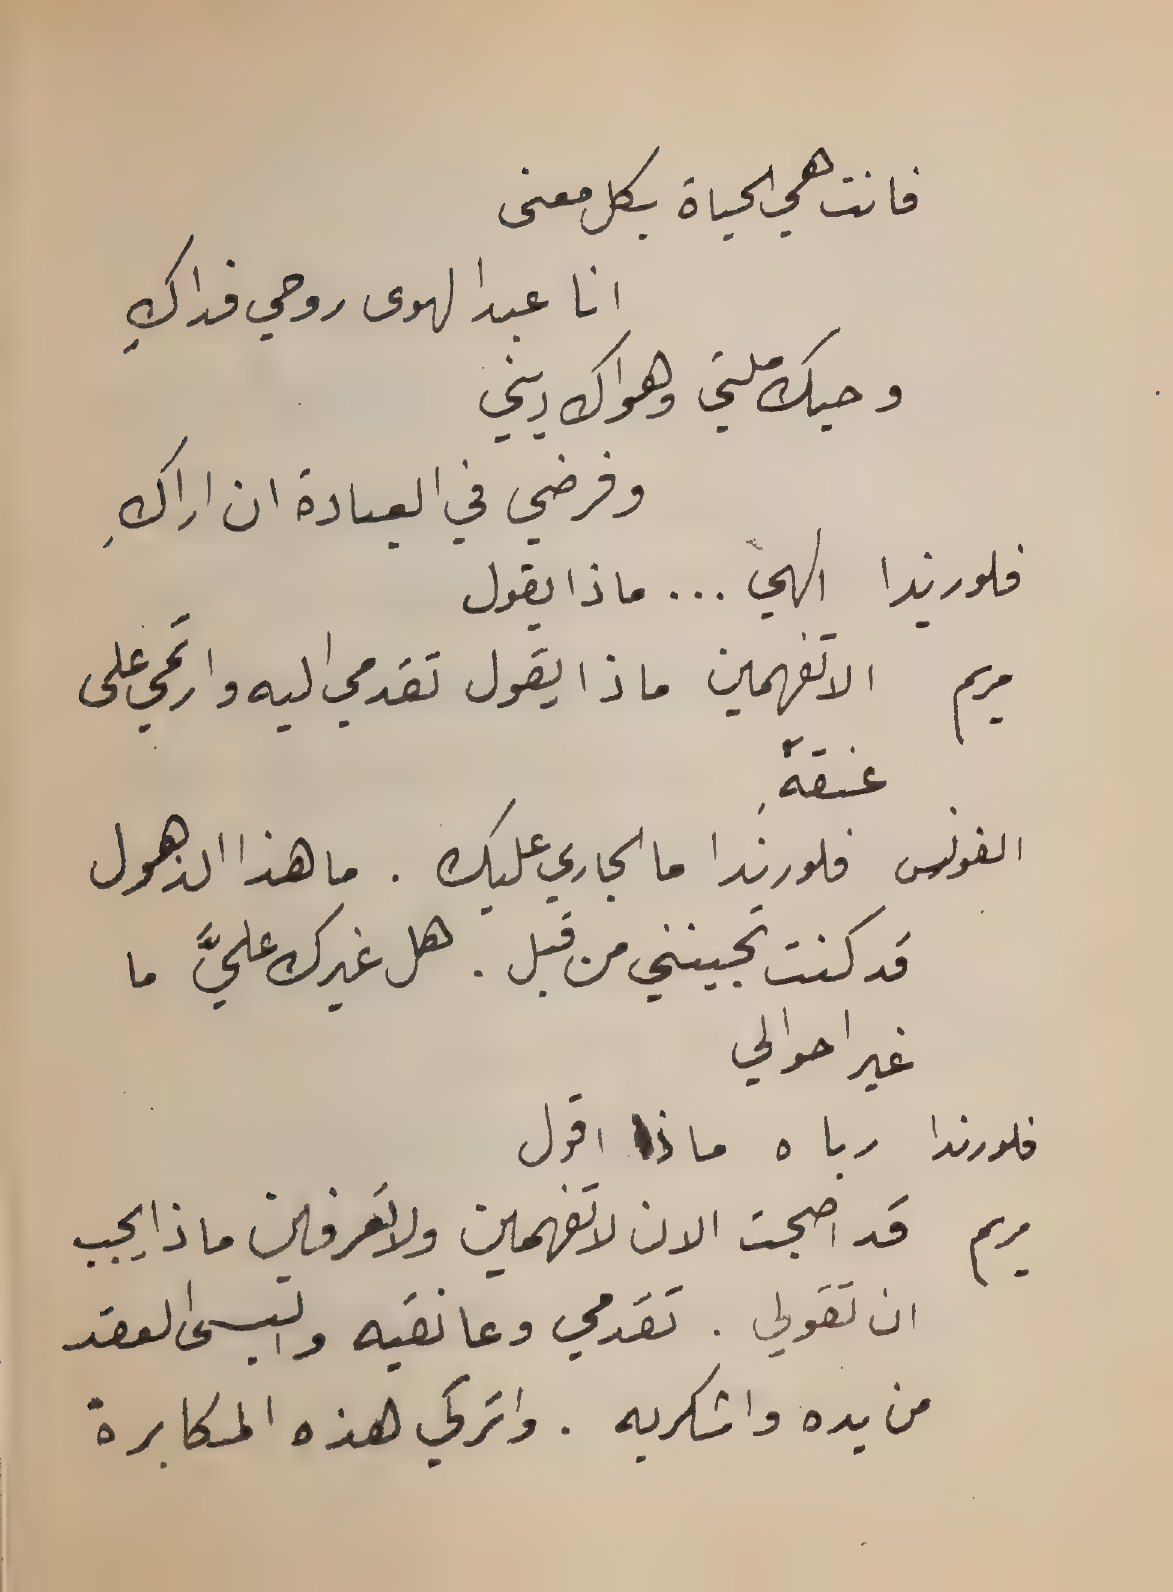 فانت هي الحياة بكل معنى
انا عبد الهوى روحي فداكِ
وحبك ملتي وهواك ديني
وفرضي في العبادة ان اراكِ
فلورندا الهي ... ماذا يقول
مريم الا تفهمين ماذا يقول تقدمي اليه وارتمي على
عنقه
الفونس فلورندا ما الجاري عليك . ما هذا الذهول
قد كنت تحبينني من قبل . هل غيرك عليَّ ما
غير احوالي
فلورندا رباه ماذا اقول
مريم قد اصبحت الان لا تفهمين ولا تعرفين ماذا يجب
ان تقولي . تقدمي وعانقيه والبسى العقد
من يده واشكريه . واتركي هذه المكابرة